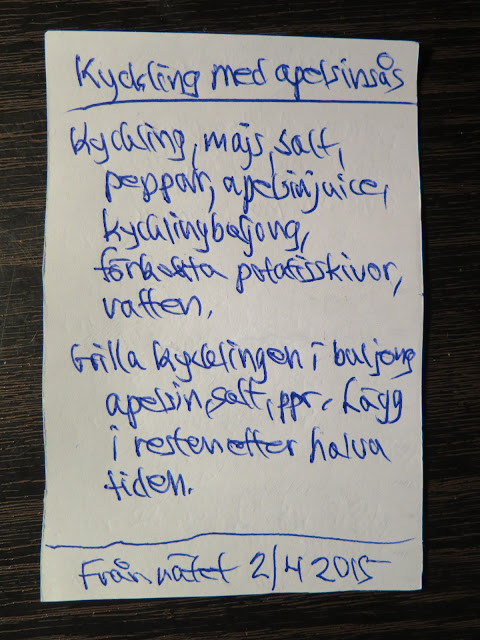 Kyckling med apelsinsås
Kyckling, majs, salt,
peppar, apelsinjuice,
kycklingbuljong,
förkokta potatisskivor,
vatten.
Grilla kycklingen i buljong
apelsin, salt, ppr. Lägg
i resten efter halva
tiden.
Från nätet 2/4 2015